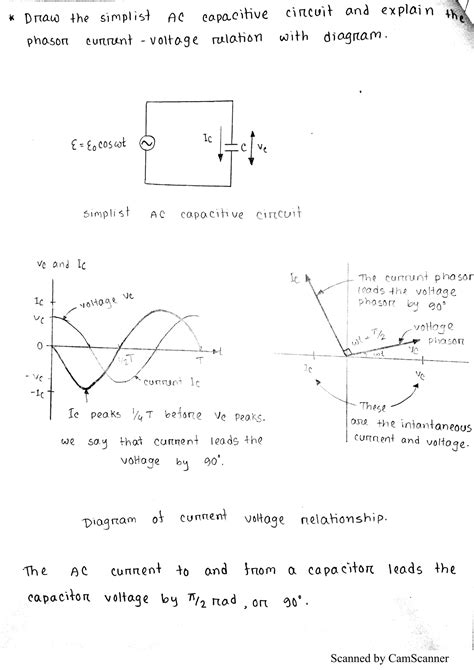 * Draw the simplist AC capacitive circuit and explain the
phason current - voltage rulation with diagram.
ε = ε₀ cos ωt
Ic
C
Vc
simplist AC capacitive circuit
Vc and Ic
Ic
Vc
0
- Vc
- Ic
voltage Vc
½T
T
t
current Ic
Ic peaks ¼ T before Vc peaks.
we say that current leads the
voltage by 90°.
Ic
The current phasor
leads the voltage
phasor by 90°
ωt - π/2
ωt
voltage
phasor
Vc
Ic
Vc
These
are the intantaneous
current and voltage.
Diagram of current voltage relationship.
The AC current to and from a capacitor leads the
capacitor voltage by π/2 rad, or 90°.
Scanned by CamScanner